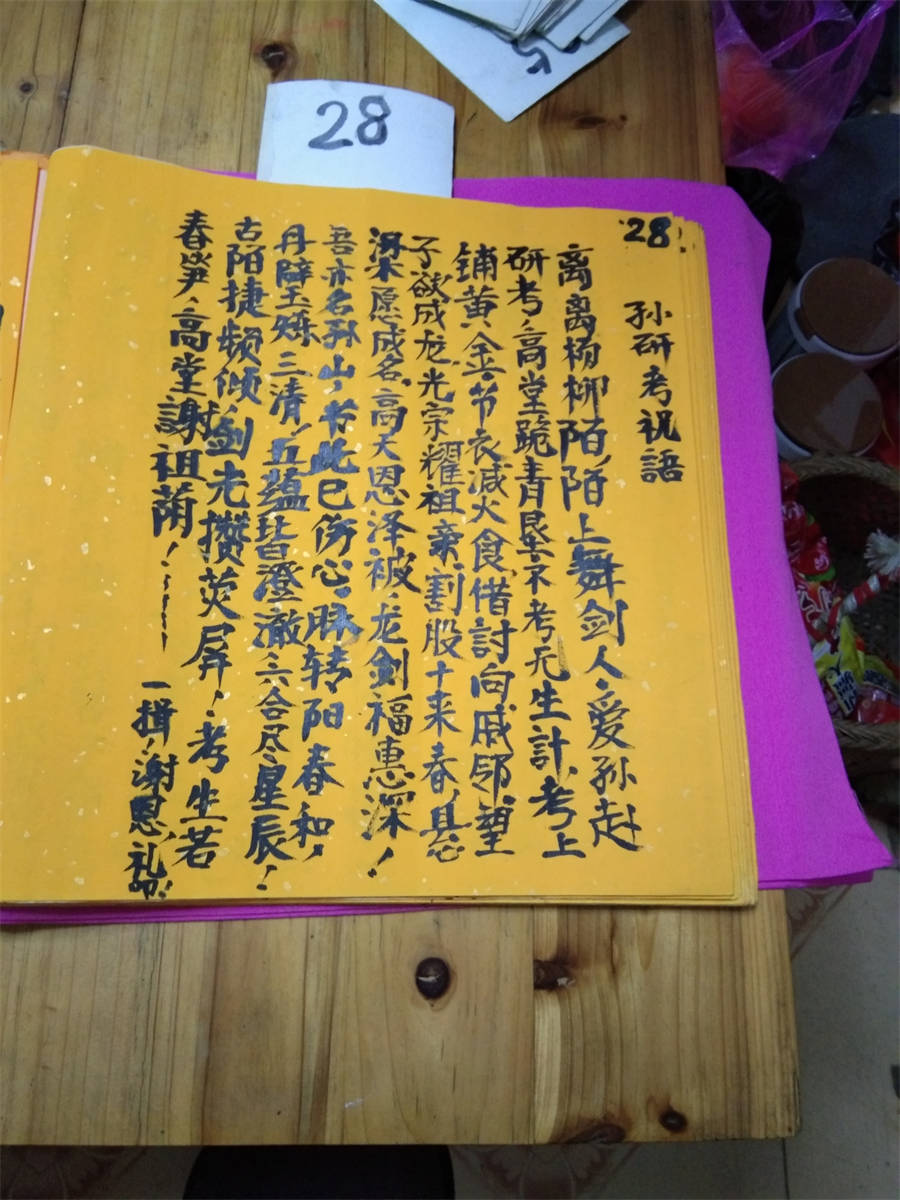 28
28
孙研考祝語
离离杨柳陌,陌上舞剑人,爱孙赴
研考,高堂跪青旻,不考无生計,考上
铺黄金,节衣减火食,借討向戚邻,望
子欲成龙,光宗耀祖亲,割股十来春,悬
梁愿成名,高天恩泽被,龙剑福惠深!
吾亦名孙山,书此已伤心,脉转阳春和,
丹辟玉烁三清,五蕴皆澄澈,六合尽星辰!
古陌捷频倾,剑光攒荧屏!考生若
春笋,高堂謝祖荫!
一揖!谢恩,礼